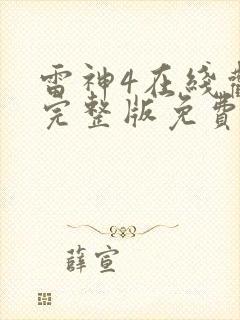 雷神4在线
完整版免费
薛宣